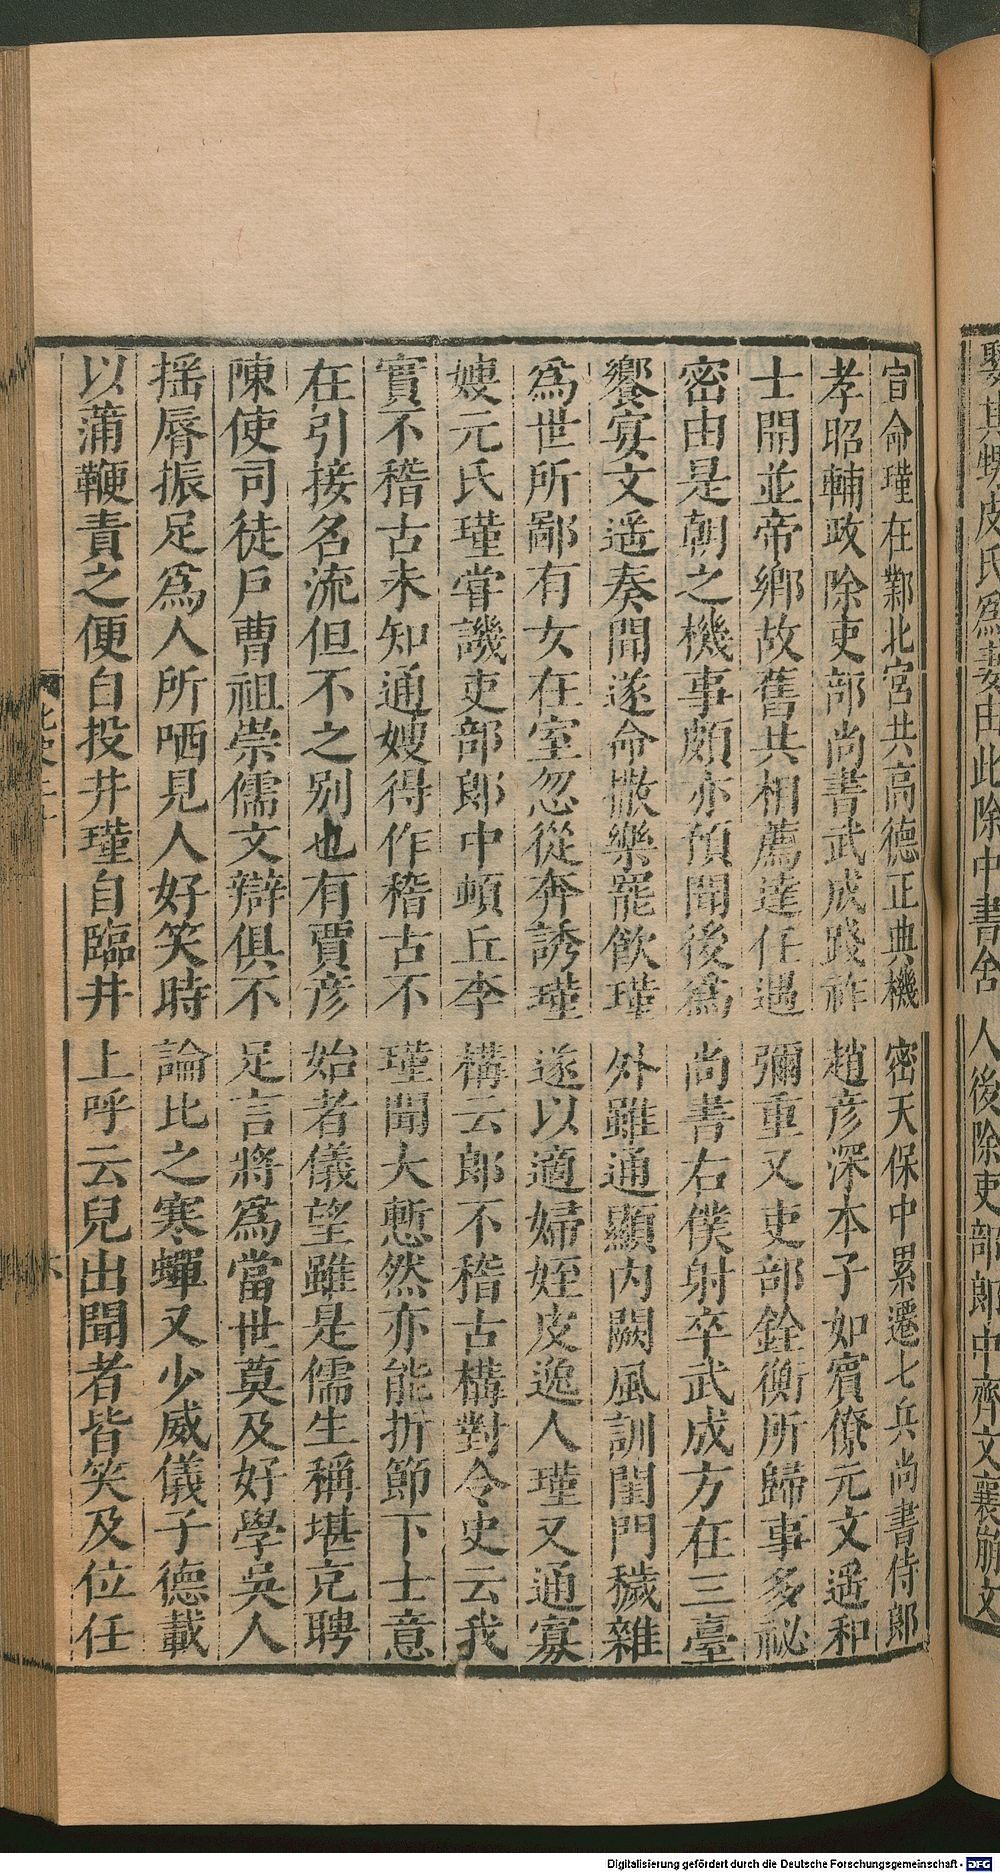 宣命瑾在鄴北宮共高德正典機密天保中累遷七兵尚書侍郎
孝昭輔政除吏部尚書武成踐祚趙彦深本子如賓僚元文遥和
士開並帝鄉故舊共相薦達任遇彌重又吏部銓衡所歸事多祕
密由是朝之機事頗亦預聞後爲尚書右僕射卒武成方在三臺
饗宴文遥奏聞遂命撤樂罷飲瑾外雖通顯内闕風訓閨門穢雜
爲世所鄙有女在室忽從奔誘瑾遂以適婦姪皮逸人瑾又通寡
嫂元氏瑾嘗譏吏部郎中頓丘李構云郎不稽古構對令史云我
實不稽古未知通嫂得作稽古不瑾聞大慙然亦能折節下士意
在引接名流但不之别也有賈彦始者儀望雖是儒生稱堪充聘
陳使司徒戸曹祖崇儒文辯俱不足言將爲當世莫及好學吳人
揺脣振足爲人所哂見人好笑時論比之寒蟬又少威儀子德載
以蒲鞭責之便自投井瑾自臨井上呼云兒出聞者皆笑及位任
娶其甥皮氏爲妻由此除中書舍人後除吏部郎中齊文襄崩文
Digitalisierung gefördert durch die Deutsche Forschungsgemeinschaft - DFG